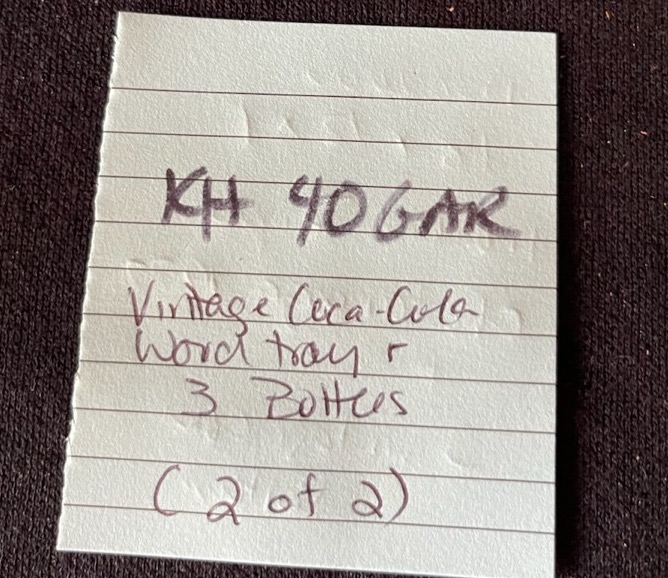 KH 40 GAR
Vintage Coca-Cola
Word tray +
3 Bottles
(2 of 2)